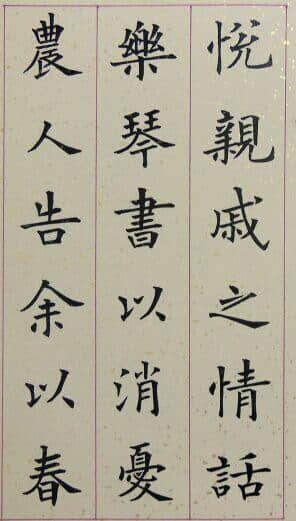 悅親戚之情話
樂琴書以消憂
農人告余以春